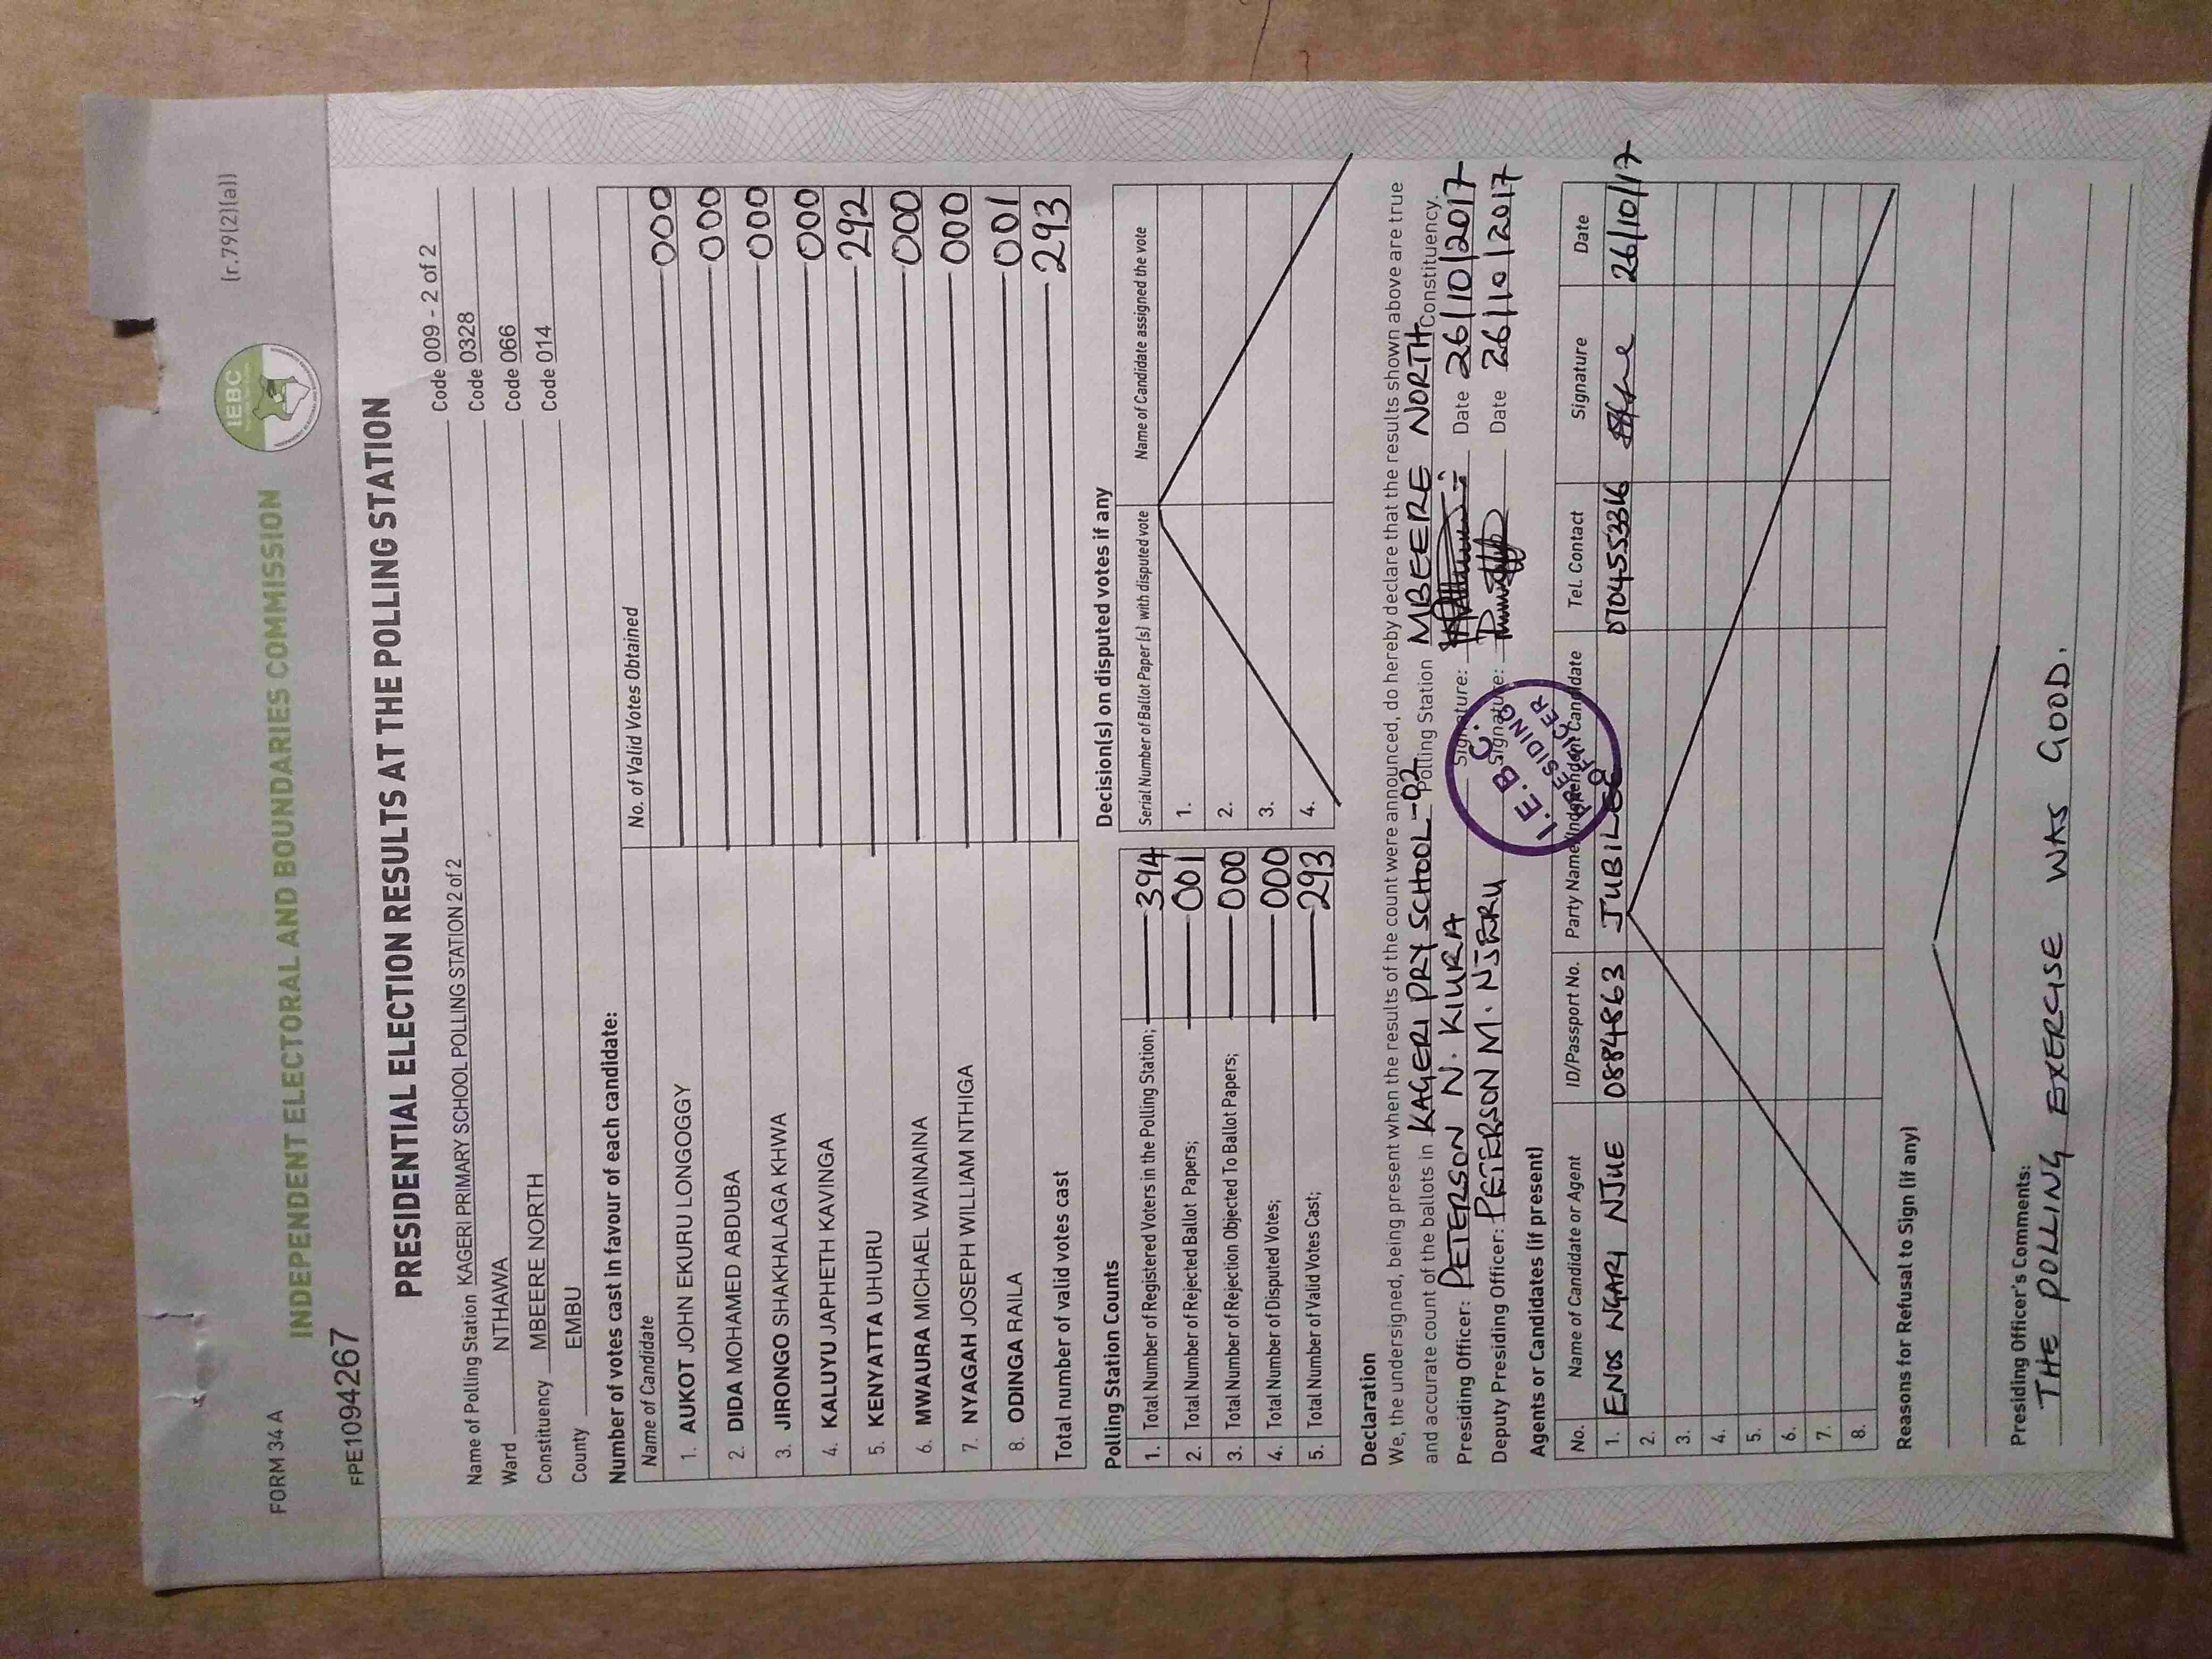 FORM 34 A
(r.79(2)(a))
IEBC
INDEPENDENT ELECTORAL AND BOUNDARIES COMMISSION
FPE1094267
PRESIDENTIAL ELECTION RESULTS AT THE POLLING STATION
Name of Polling Station KAGERI PRIMARY SCHOOL POLLING STATION 2 of 2 Code 009 - 2 of 2
Ward NTHAWA Code 0328
Constituency MBEERE NORTH Code 066
County EMBU Code 014
Number of votes cast in favour of each candidate:
Name of Candidate No. of Valid Votes Obtained
1. AUKOT JOHN EKURU LONGOGGY 000
2. DIDA MOHAMED ABDUBA 000
3. JIRONGO SHAKHALAGA KHWA 000
4. KALUYU JAPHETH KAVINGA 000
5. KENYATTA UHURU 292
6. MWAURA MICHAEL WAINAINA 000
7. NYAGAH JOSEPH WILLIAM NTHIGA 000
8. ODINGA RAILA 001
Total number of valid votes cast 293
Polling Station Counts
1. Total Number of Registered Voters in the Polling Station; 394
2. Total Number of Rejected Ballot Papers; 001
3. Total Number of Rejection Objected To Ballot Papers; 000
4. Total Number of Disputed Votes; 000
5. Total Number of Valid Votes Cast; 293
Decision(s) on disputed votes if any
Serial Number of Ballot Paper (s) with disputed vote Name of Candidate assigned the vote
1.
2.
3.
4.
Declaration
We, the undersigned, being present when the results of the count were announced, do hereby declare that the results shown above are true
and accurate count of the ballots in KAGERI PRY SCHOOL-02 Polling Station MBEERE NORTH Constituency.
Presiding Officer: PETERSON N. KIURA Signature: Date 26/10/2017
Deputy Presiding Officer: PETERSON M. NJERU Signature: Date 26/10/2017
I.E.B.C.
PRESIDING
OFFICER
Agents or Candidates (if present)
No. Name of Candidate or Agent ID/Passport No. Party Name/Independent Candidate Tel. Contact Signature Date
1. ENOS NGARI NJUE 0884863 JUBILEE 26/10/17
2.
3.
4.
5.
6.
7.
8.
Reasons for Refusal to Sign (if any)
Presiding Officer's Comments:
THE POLLING EXERCISE WAS GOOD.